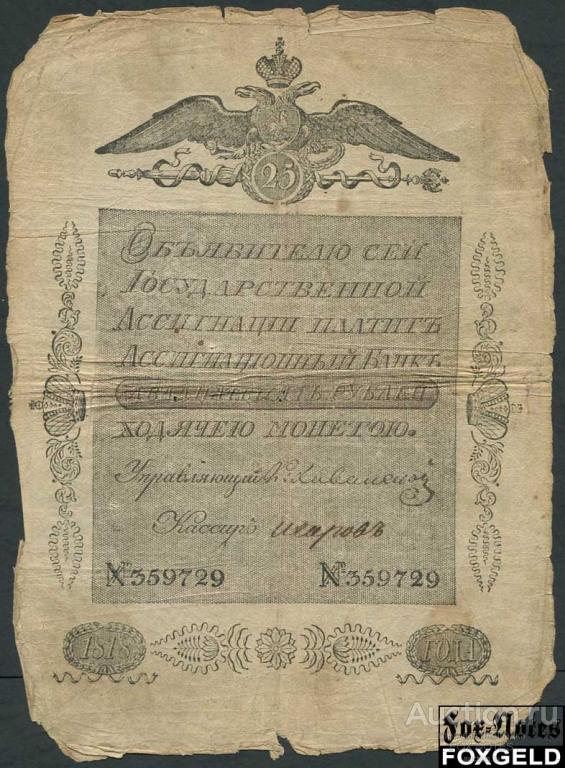 25
Объявителю сей
Государственной
Ассигнации платитъ
Ассигнаціонный Банкъ
двадцать пять рублей
ходячею монетою.
Управляющій
Кассиръ
№ 359729 № 359729
1818 ГОДА
Auction.ru
Fox-Notes
FOXGELD